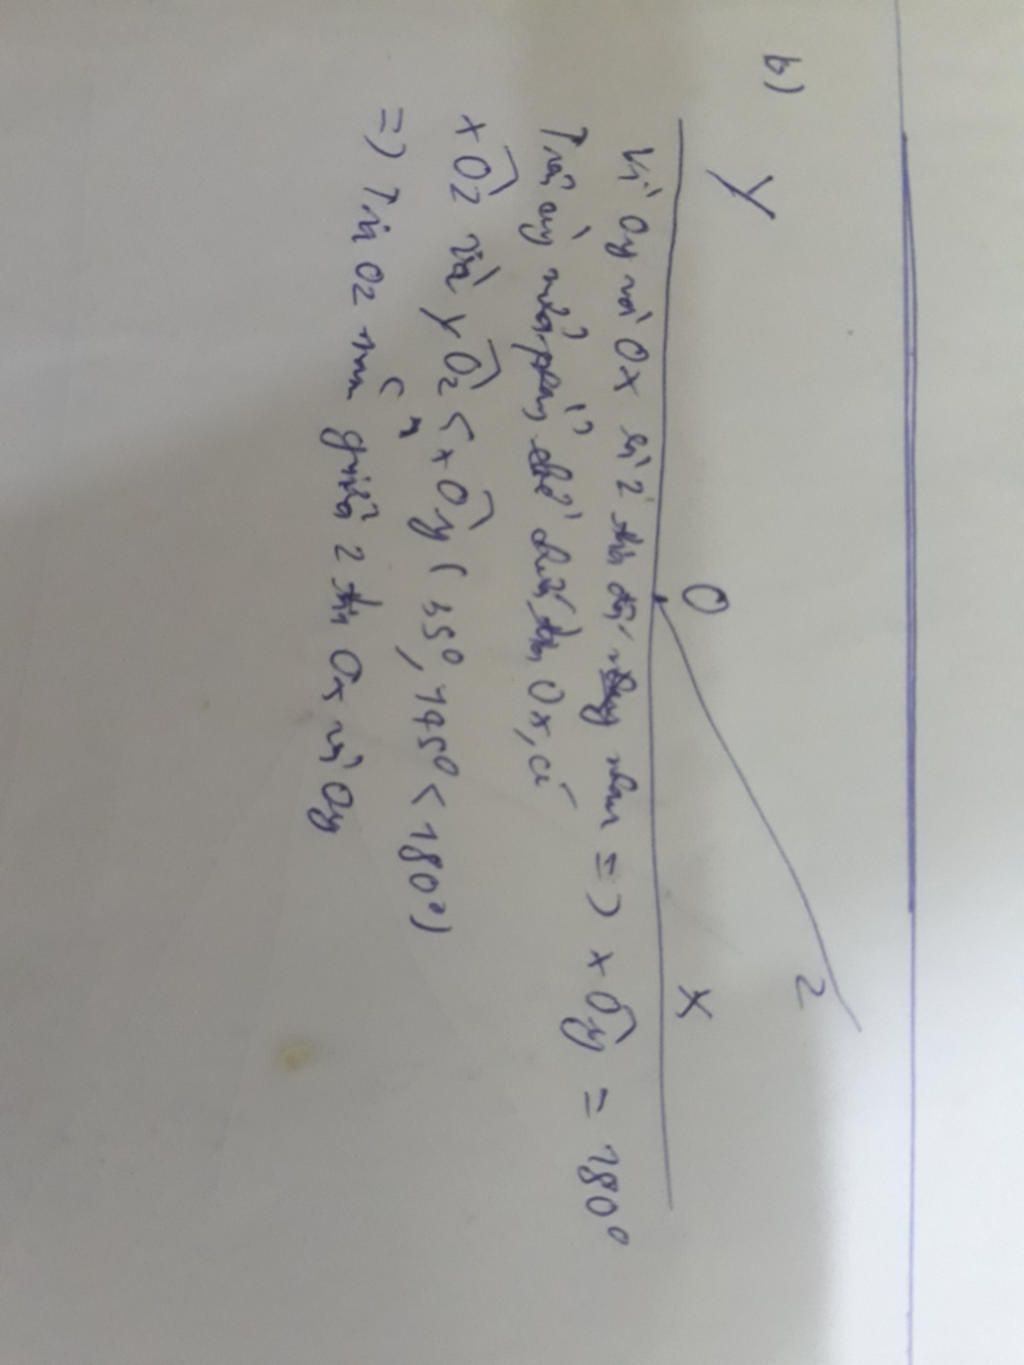 b)
y O x z
Vì Oy và Ox là 2 tia đối nhau => xÔy = 180°
Trên cùng nửa phẳng, bờ chứa tia Ox, có
xÔz và yÔz < xÔy ( 35°, 145° < 180°)
=> Tia Oz nằm giữa 2 tia Ox và Oy